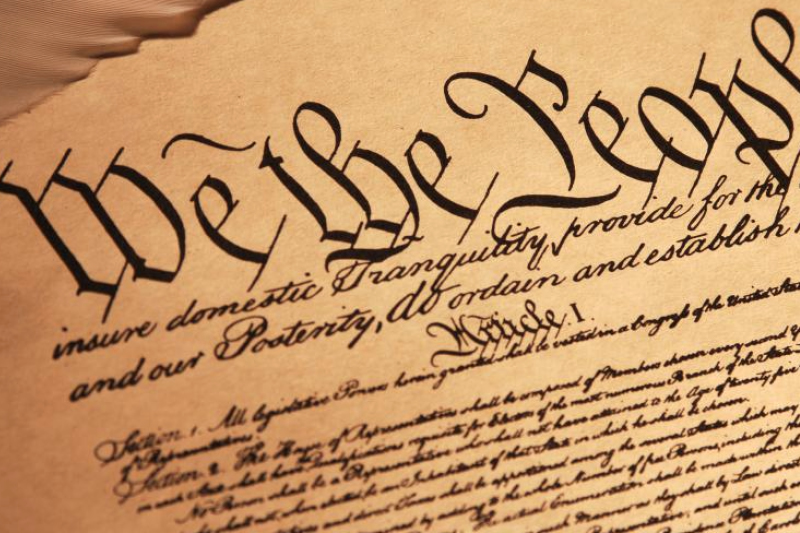 We the People
insure domestic Tranquility, provide for the
and our Posterity, do ordain and establish
Article. I.
Section. 1. All legislative Powers herein granted shall be vested in a Congress of the United
of Representatives.
Section. 2. The House of Representatives shall be composed of Members chosen every second
in each State shall have Qualifications requisite for Electors of the most numerous Branch of the State
No Person shall be a Representative who shall not have attained to the Age of twenty five
shall not, when elected, be an Inhabitant of that State in which he shall be chosen.
and direct Taxes shall be apportioned among the several States which may
by adding to the whole Number of free Persons, including
The actual Enumeration shall be made within
such Manner as they shall by Law
Representative; and until such
Plantations